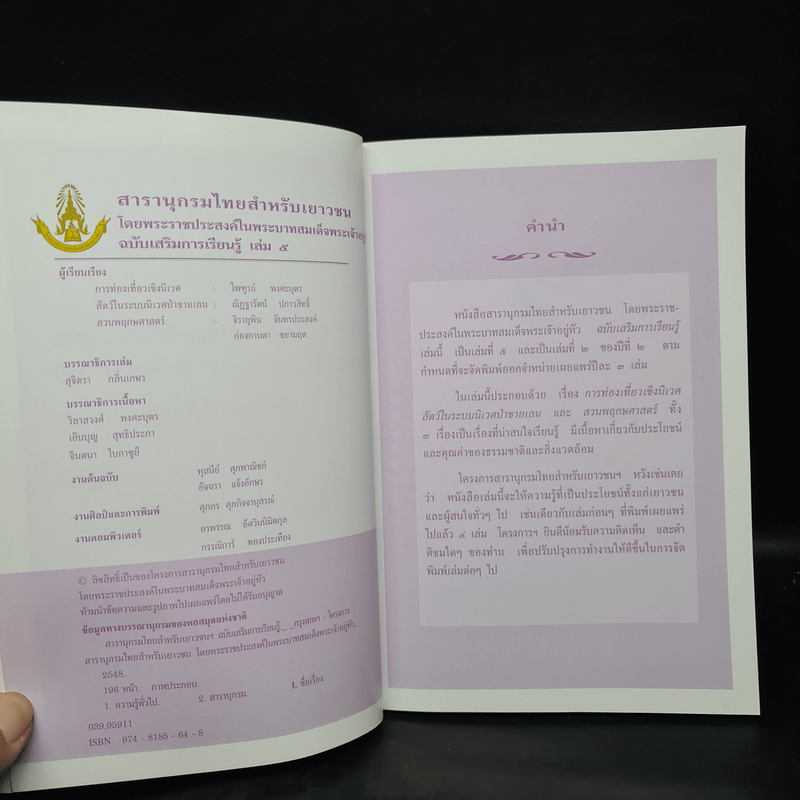 สารานุกรมไทยสำหรับเยาวชน
โดยพระราชประสงค์ในพระบาทสมเด็จพระเจ้าอยู่
ฉบับเสริมการเรียนรู้ เล่ม ๕
ผู้เรียบเรียง
การท่องเที่ยวเชิงนิเวศ : ไพฑูรย์ พงศะบุตร
สัตว์ในระบบนิเวศป่าชายเลน : ณิฏฐารัตน์ ปภาวสิทธิ์
สวนพฤกษศาสตร์ : จิรายุพิน จันทรประสงค์
ก่องกานดา ชยามฤต
บรรณาธิการเล่ม
สุจิตรา กลิ่นเกษร
บรรณาธิการเนื้อหา
วิลาสวงศ์ พงศะบุตร
เอิบบุญ สุทธิประภา
จินตนา ใบกาซูยี
งานต้นฉบับ ทุสนีย์ ศุภพาณิชย์
อัจฉรา แจ้งอักษร
งานศิลป์และการพิมพ์ ศุภกร ศุภกิจจานุสรณ์
งานคอมพิวเตอร์ อรพรรณ อัศวินนิมิตกุล
กรรณิการ์ ทองประเทือง
© ลิขสิทธิ์เป็นของโครงการสารานุกรมไทยสำหรับเยาวชน
โดยพระราชประสงค์ในพระบาทสมเด็จพระเจ้าอยู่หัว
ห้ามนำข้อความและรูปภาพไปเผยแพร่โดยไม่ได้รับอนุญาต
ข้อมูลทางบรรณานุกรมของหอสมุดแห่งชาติ
สารานุกรมไทยสำหรับเยาวชนฯ ฉบับเสริมการเรียนรู้._ _กรุงเทพฯ : โครงการ
สารานุกรมไทยสำหรับเยาวชน โดยพระราชประสงค์ในพระบาทสมเด็จพระเจ้าอยู่หัว,
2548.
196 หน้า. ภาพประกอบ.
1. ความรู้ทั่วไป. 2. สารานุกรม. I. ชื่อเรื่อง.
039.95911
ISBN 974 - 8185 - 64 - 8
คำนำ
หนังสือสารานุกรมไทยสำหรับเยาวชน โดยพระราช-
ประสงค์ในพระบาทสมเด็จพระเจ้าอยู่หัว ฉบับเสริมการเรียนรู้
เล่มนี้ เป็นเล่มที่ ๕ และเป็นเล่มที่ ๒ ของปีที่ ๒ ตาม
กำหนดที่จะจัดพิมพ์ออกจำหน่ายเผยแพร่ปีละ ๓ เล่ม
ในเล่มนี้ประกอบด้วย เรื่อง การท่องเที่ยวเชิงนิเวศ
สัตว์ในระบบนิเวศป่าชายเลน และ สวนพฤกษศาสตร์ ทั้ง
๓ เรื่องเป็นเรื่องที่น่าสนใจเรียนรู้ มีเนื้อหาเกี่ยวกับประโยชน์
และคุณค่าของธรรมชาติและสิ่งแวดล้อม
โครงการสารานุกรมไทยสำหรับเยาวชนฯ หวังเช่นเคย
ว่า หนังสือเล่มนี้จะให้ความรู้ที่เป็นประโยชน์ทั้งแก่เยาวชน
และผู้สนใจทั่วๆ ไป เช่นเดียวกับเล่มก่อนๆ ที่พิมพ์เผยแพร่
ไปแล้ว ๔ เล่ม โครงการฯ ยินดีน้อมรับความคิดเห็น และคำ
ติชมใดๆ ของท่าน เพื่อปรับปรุงการทำงานให้ดีขึ้นในการจัด
พิมพ์เล่มต่อๆ ไป